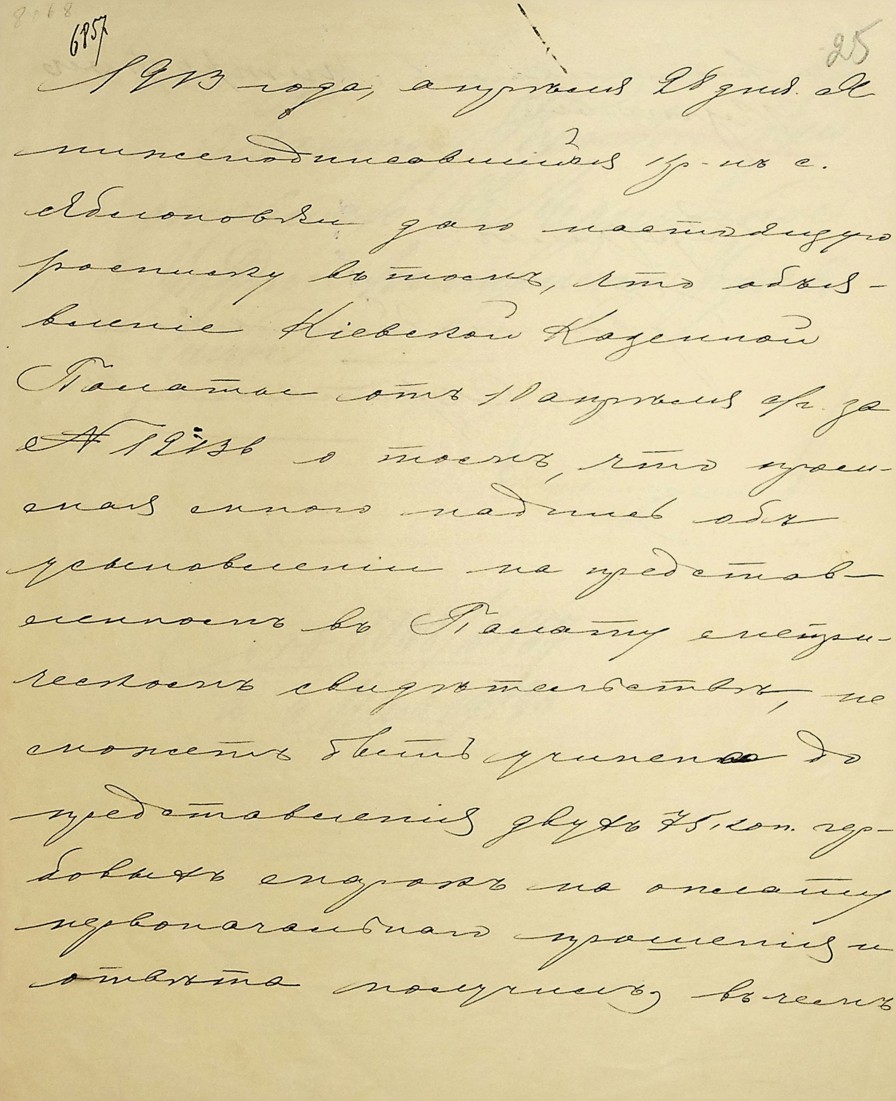 6857
25
1913 года, апрѣля 28 дня. Я
нижеподписавшійся кр-нъ с.
Яблоновки даю настоящую
росписку въ томъ, что объя-
вленіе Кіевской Казенной
Палаты отъ 10 апрѣля с/г. за
№ 12136 о томъ, что проси-
мая мною надпись объ
усыновленіи на представ-
ленномъ въ Палату метри-
ческомъ свидѣтельствѣ, не
можетъ быть учинена до
представленія двухъ 75 коп. гер-
бовыхъ марокъ на оплату
первоначальнаго прошенія и
отвѣта получилъ, въ чемъ